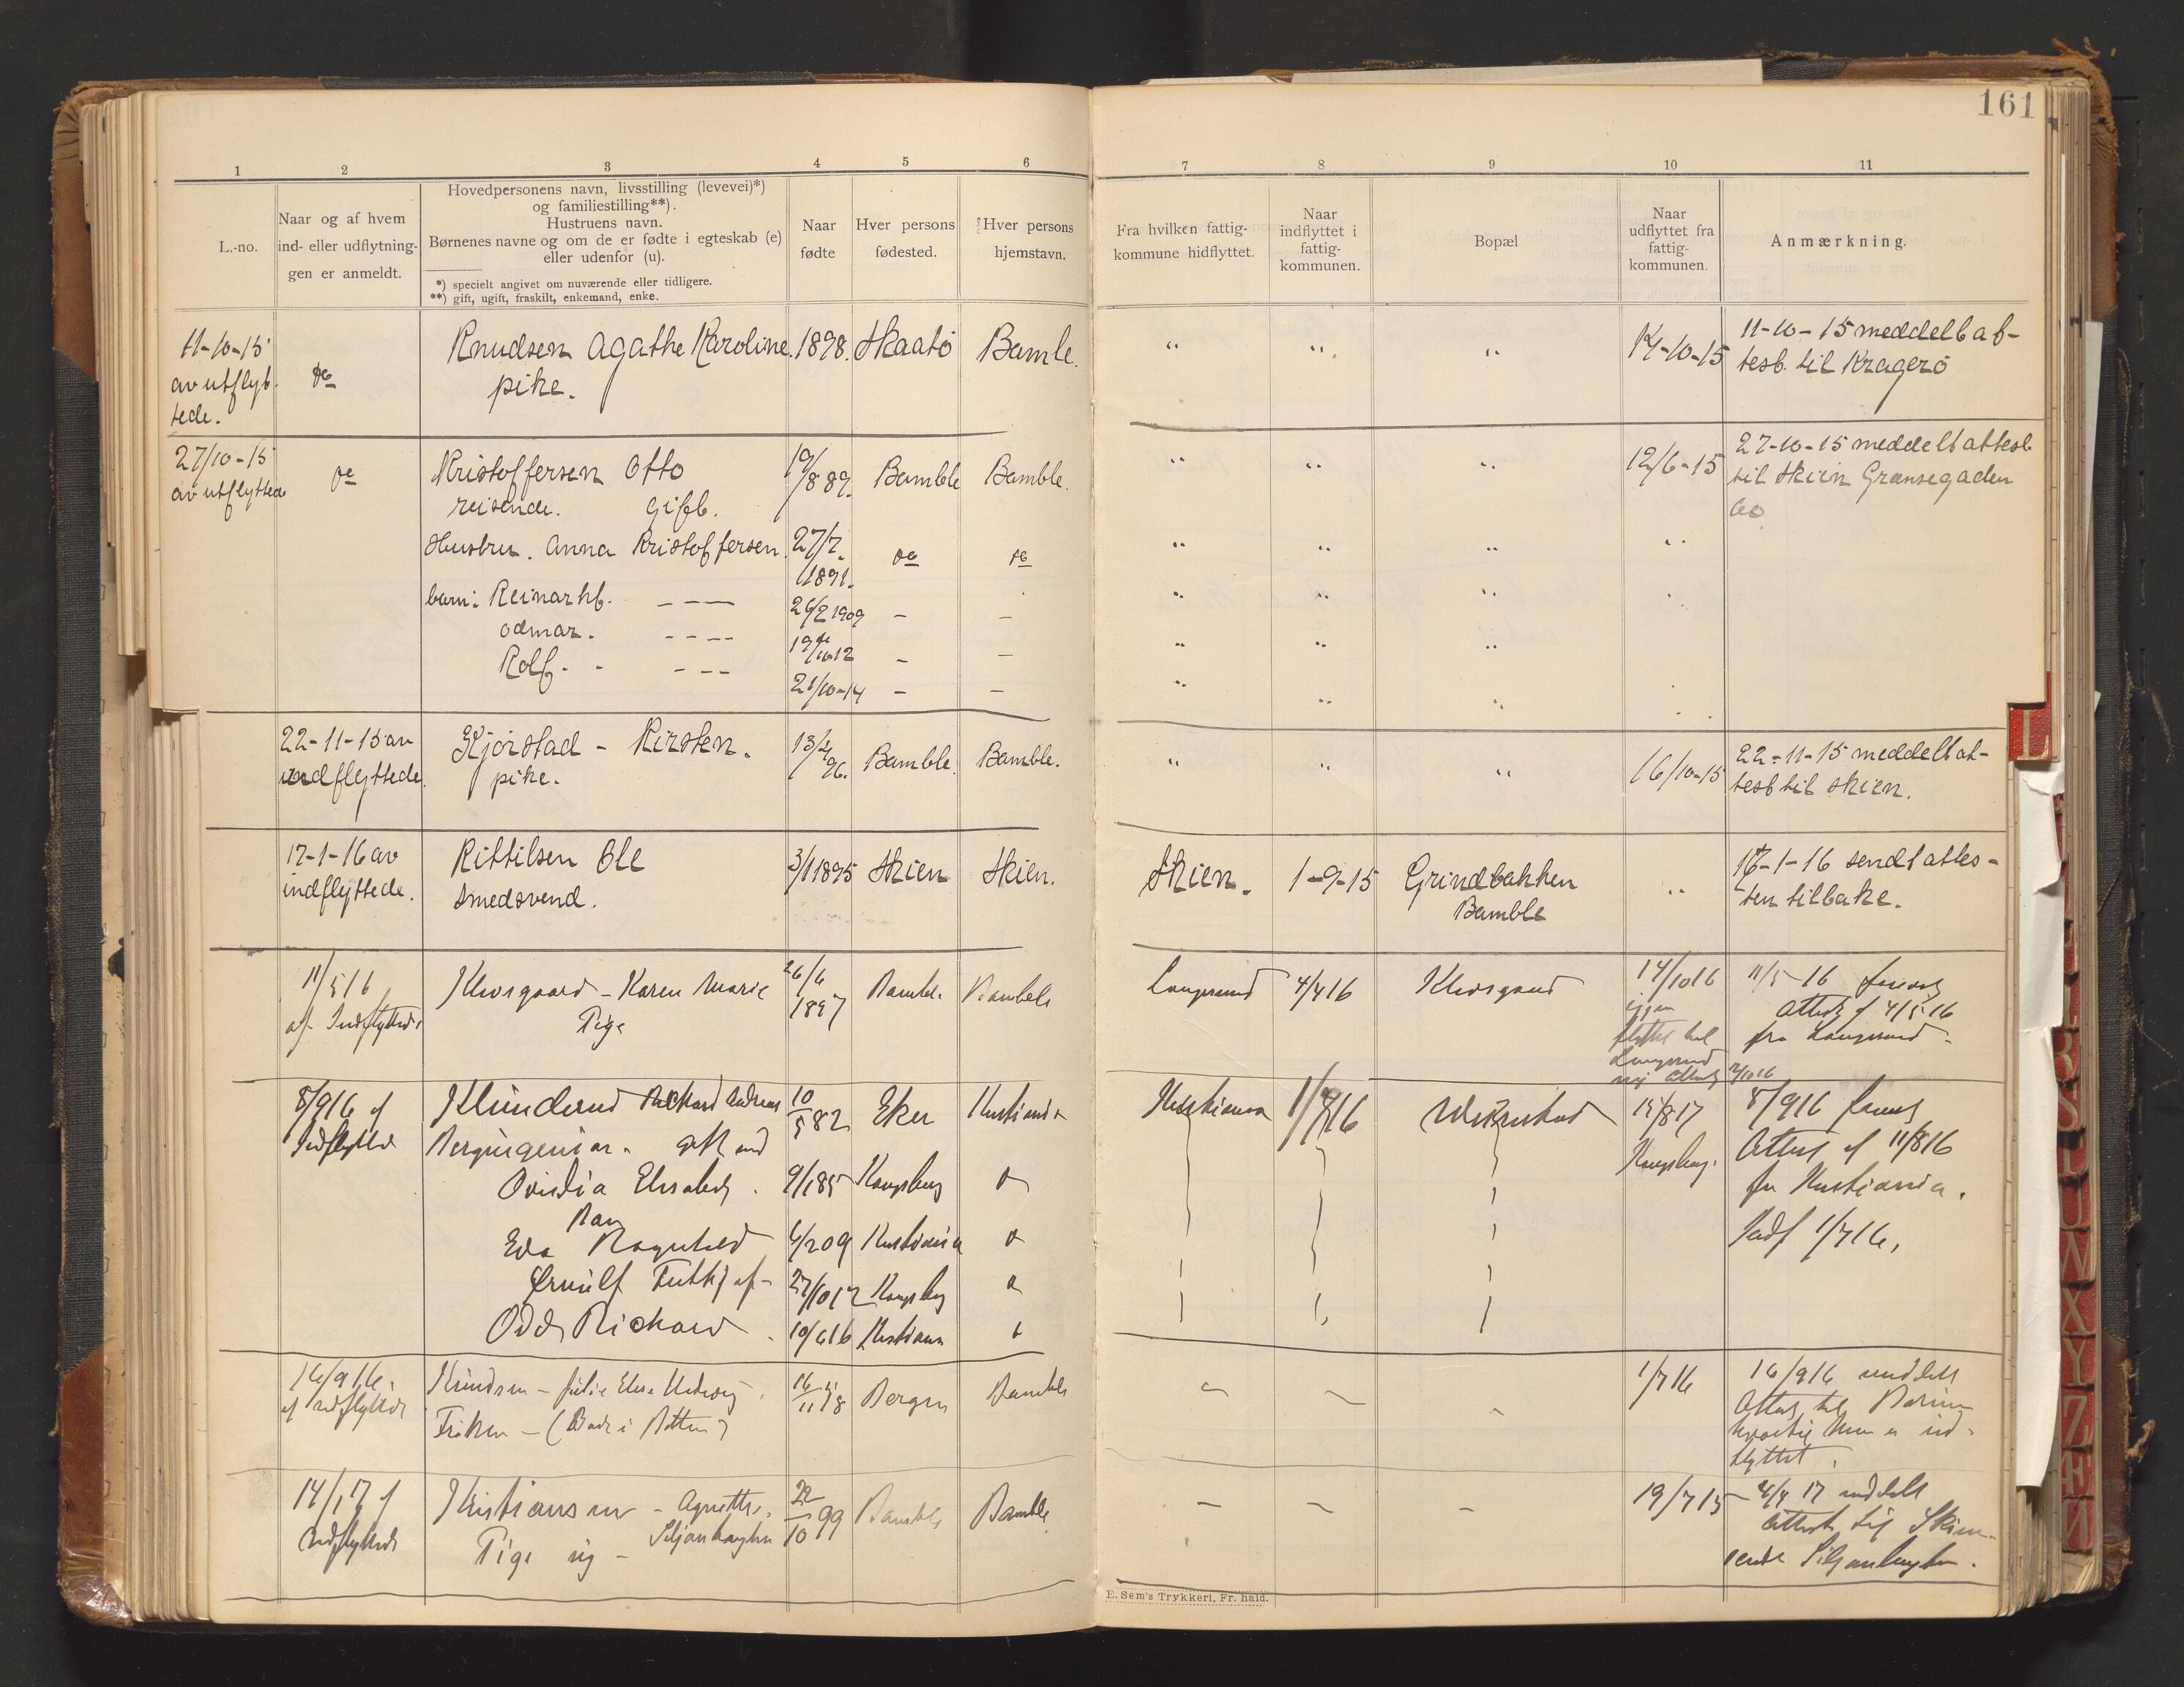 161
1 2 3 4 5 6 7 8 9 10 11
L.-no.
Naar og af hvem
ind- eller udflytning-
gen er anmeldt.
Hovedpersonens navn, livsstilling (levevei)*)
og familiestilling**).
Hustruens navn.
Børnenes navne og om de er fødte i egteskab (e)
eller udenfor (u).
*) specielt angivet om nuværende eller tidligere.
**) gift, ugift, fraskilt, enkemand, enke.
Naar
fødte
Hver persons
fødested.
Hver persons
hjemstavn.
Fra hvilken fattig-
kommune hidflyttet.
Naar
indflyttet i
fattig-
kommunen.
Bopæl
Naar
udflyttet fra
fattig-
kommunen.
Anmærkning.
11-10-15
av utflyt-
tede.
do
Knudsen Agathe Karoline
pike.
1898. Skaatø Bamle.
" " "
11-10-15 meddelt at-
test til Kragerø
27/10-15
av utflyttede
do
Kristoffersen Otto
reisende. Gift.
19/8 89. Bamble Bamble.
" " " 12/6-15
27-10-15 meddelt attest
til Skien Grænsegaden
60
Hustru. Anna Kristoffersen.
27/7
1891.
do do
" " " "
barn: Reinart - - -
26/2 1909 - -
Odmar. - - - -
19/10 12 - -
Rolf. - - - -
21/10-14 - -
22-11-15 av
udflyttede.
Kjørstad - Kirsten.
pike.
13/4 96. Bamble. Bamble.
" " " 16/10-15
22-11-15 meddelt at-
test til Skien.
17-1-16 av
indflyttede.
Kittilsen Ole
Smedsvend.
3/1 1895 Skien Skien.
Skien. 1-9-15 Grindbakken
Bamble
"
17-1-16 sendt attes-
ten tilbake.
11/5 16
af Indflyttede
Klovgaard - Karen Marie
Pige
26/6
1897
Bamble Bamble
Langesund 4/4 16 Klovgaard
14/10 16
igjen
flyttet til
Langesund
11/5-16
Attest af 4/5 16
fra Langesund.
8/9 16 af
Indflyttede
Klunderud Richard Andreas
Bergingeniør. gift med
10/5 82 Eker Kristiania
Kristiania 1/7 16
15/8 17
Kongsberg.
8/9 16
Attest af 11/8 16
fra Kristiania.
Indf 1/7 16.
Ovidia Elisabeth.
9/1 85 Kongsberg do
Eva Ragnhild
6/2 09 Kristiania do
Ørnulf
27/10 12 Kongsberg do
Odd Richard
19/6 16 Kristiania
16/9 16.
af udflyttede
Knudsen - Julie Elise Hedevig.
Frøken
16/11 78 Bergen Bamble
1/7 16
16/9 16 meddelt
Attest til
hvortil hun er ud-
flyttet.
14/ 17 af
Udflyttede
Kristiansen - Agnethe.
Pige ug -
22/10 99 Bamble Bamble
- - - 19/7 15
4/4 17 meddelt
Attest til Skien
E. Sem's Trykkeri, Fr. hald.
L
R
S
T
U
W
X
Y
Z
Æ